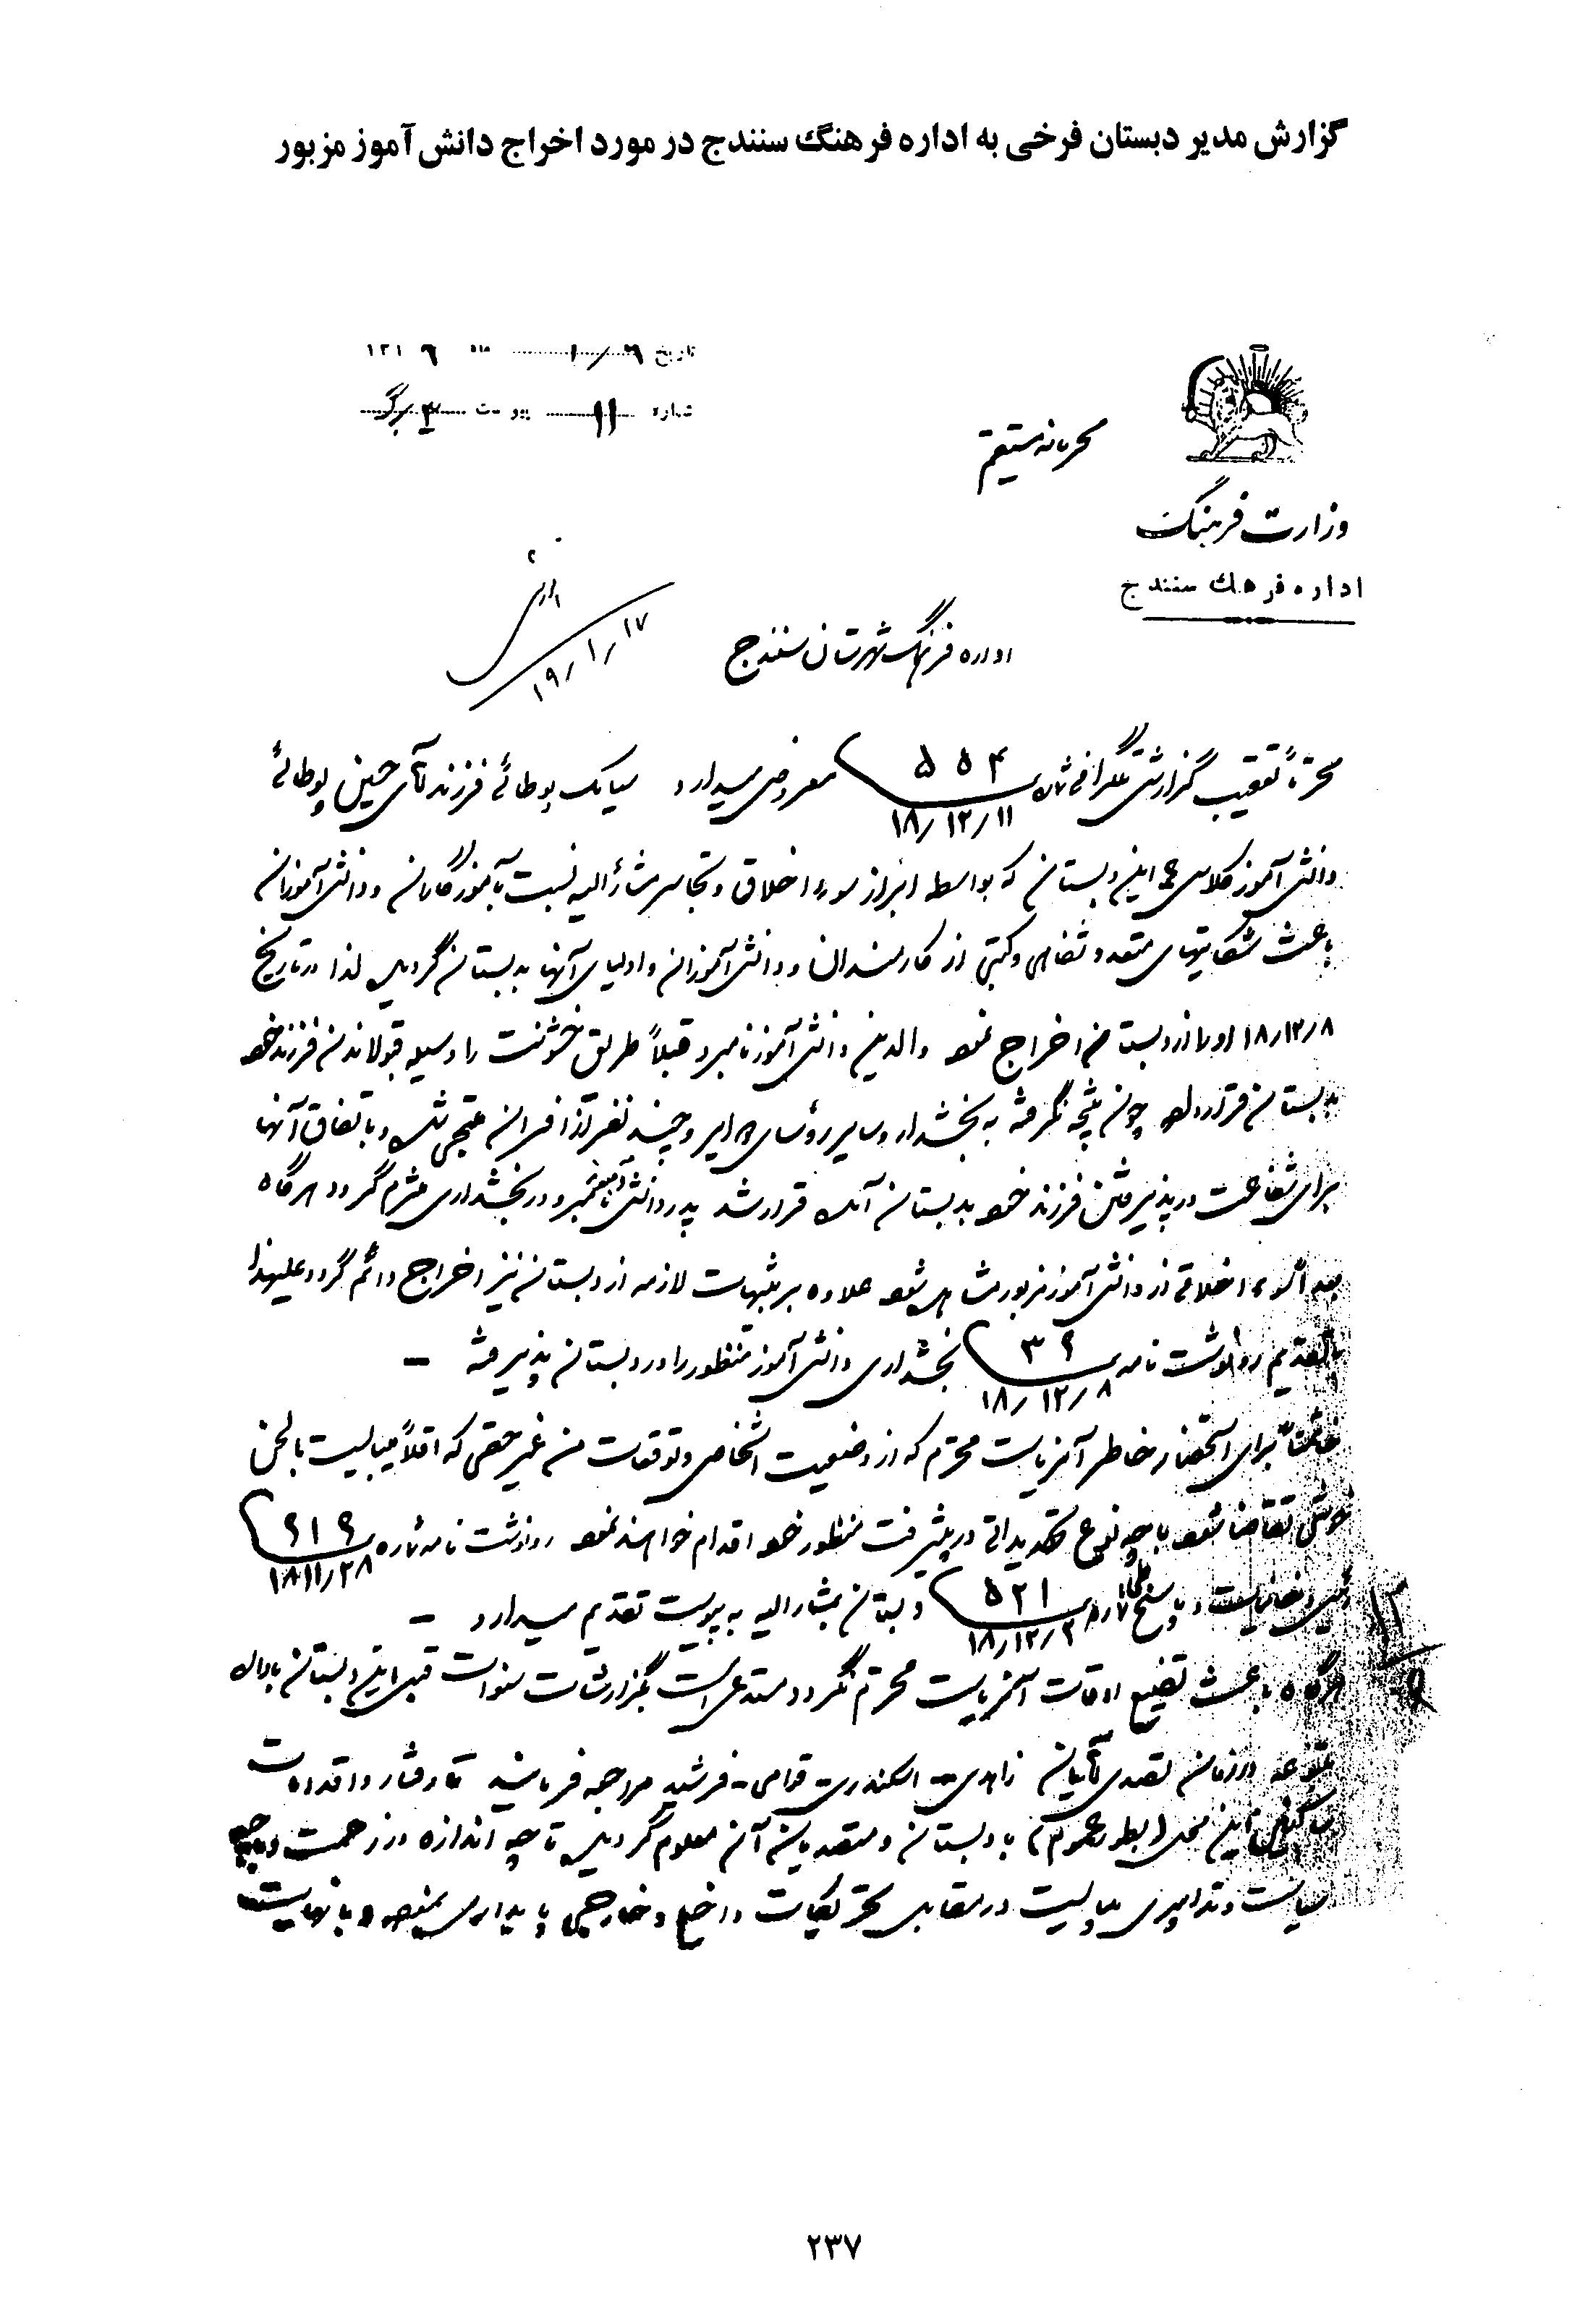 گزارش مدیر دبستان فرخی به اداره فرهنگ سنندج در مورد اخراج دانش آموز مزبور
تاریخ ۱۳۱ ماه
شماره ۱۱ پیوست ۳ برگ
محرمانه مستقیم
وزارت فرهنگ
اداره فرهنك سنندج
۱۹/۱/۱۷
اداره فرهنگ شهرستان سنندج
محترماً تعقیب گزارش تلگرافی شماره ۵۵۴ ۱۸/۱۲/۱۱ معروض میدارد سیامک فرزند آقای حسین
دانش آموز کلاس این دبستان که بواسطه ابراز سوء اخلاق و تجاسر مشارٌالیه نسبت بآموزگاران و دانش آموزان
باعث شکایتهای متعدد شفاهی و کتبی از کارمندان و دانش آموزان و اولیای آنها بدبستان گردیده لذا در تاریخ
۱۸/۱۲/۸ او را از دبستان اخراج نمود والدین دانش آموز نامبرد قبلاً طریق خشونت را وسیله قبولاندن فرزند خود
بدبستان قرار داده چون نتیجه نگرفته به بخشدار و سایر رؤسای دوایر و چند نفر از افسران ملتجی شده و باتفاق آنها
برای شفاعت در پذیرفتن فرزند خود بدبستان آمده قرار شد پدر دانش آموز نامبرد در بخشداری ملتزم گردد هرگاه
بعداً سوء اخلاقی از دانش آموز مزبور مشاهده شود علاوه بر تنبیهات لازمه از دبستان نیز اخراج دائم گردد علیهذا
با تقدیم رونوشت نامه ۳۶ ۱۸/۱۲/۸ بخشداری دانش آموز منظور را در دبستان پذیرفته –
خاتمتاً برای استحضار خاطر آنریاست محترم که از وضعیت اشخاص و توقعات من غیر حقی که اقلاً میبایست با لحن
خوشی تقاضا شود با چه نوع تهدیداتی در پیشرفت منظور خود اقدام خواهند نمود رونوشت نامه شماره ۶۱۶ ۱۸/۱۱/۲۸
رئیس دخانیات و پاسخ شماره ۵۲۱ ۱۸/۱۲/۲ دبستان بمشارالیه به پیوست تقدیم میدارد –
هرگاه باعث تضییع اوقات آنریاست محترم نگردد مستدعی است بگزارشات سنوات قبل این دبستان باداره
متبوعه در زمان تصدی آقایان زاهدی – اسکندری – قوامی – فرشید مراجعه فرمایند تا رفتار و اقدامات
ساکنین این محل (بطور عموم) با دبستان و متصدیان آن معلوم گردیده تا چه اندازه در زحمت و با چه
سیاست و تدابیری میبایست در مقابل تحریکات داخلی و خارجی پایداری نموده و با نهایت
۲۳۷